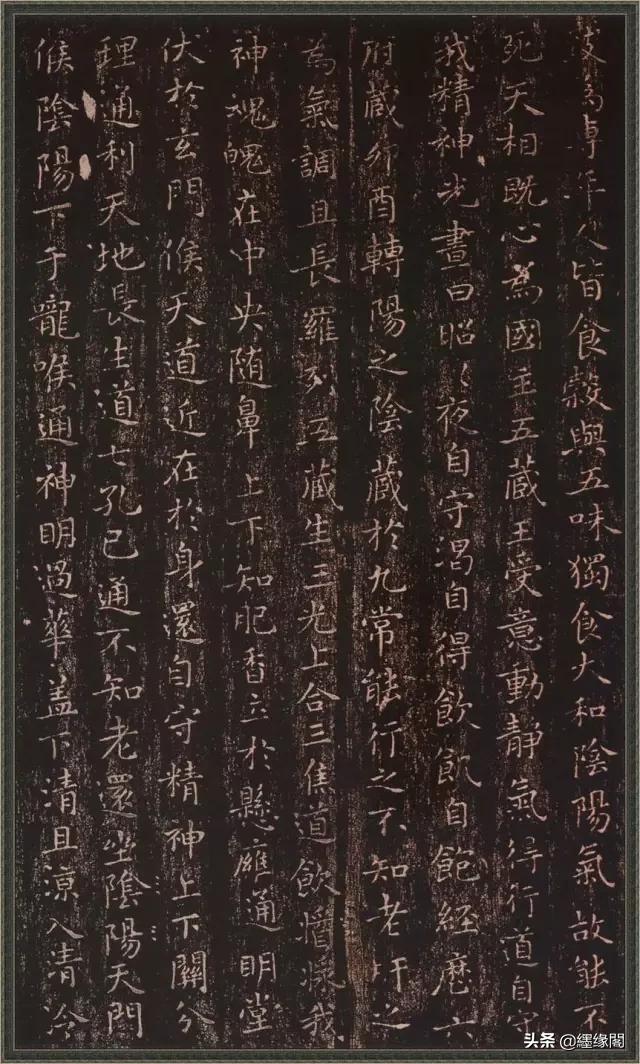 致為專年人皆食穀與五味獨食大和陰陽氣故能不
死天相既心為國主五藏王受意動静氣得行道自守
我精神光晝日昭〻夜自守渴自得飲飢自飽經歷六
府藏卯酉轉陽之陰藏於九常能行之不知老肝之
為氣調且長羅列五藏生三光上合三焦道飲醬漿我
神魂魄在中央随鼻上下知肥香立於懸廱通明堂
伏於玄門候天道近在於身還自守精神上下關分
理通利天地長生道七孔已通不知老還坐陰陽天門
候陰陽下于嚨喉通神明過華盖下清且涼入清冷
头条 @纆缘閣